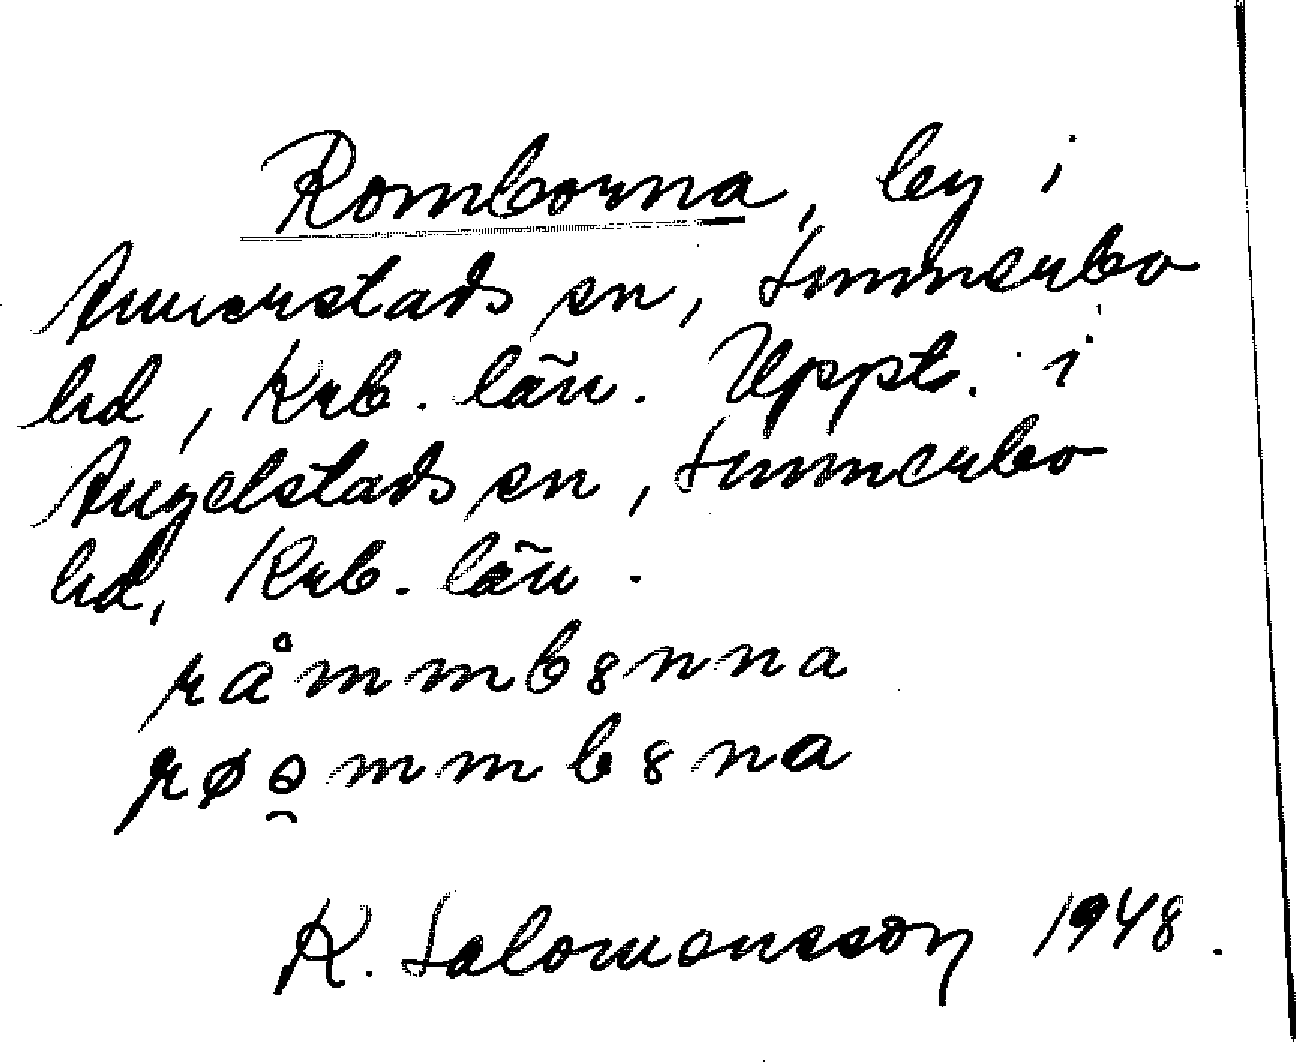 Romborna, by i
Annerstads sn, Sunnerbo
hd, Krb. län. Uppt. i
Angelstads sn, Sunnerbo
hd, Krb. län.
råmmb8nna
røo̯mmb8na
K. Salomonsson 1948.